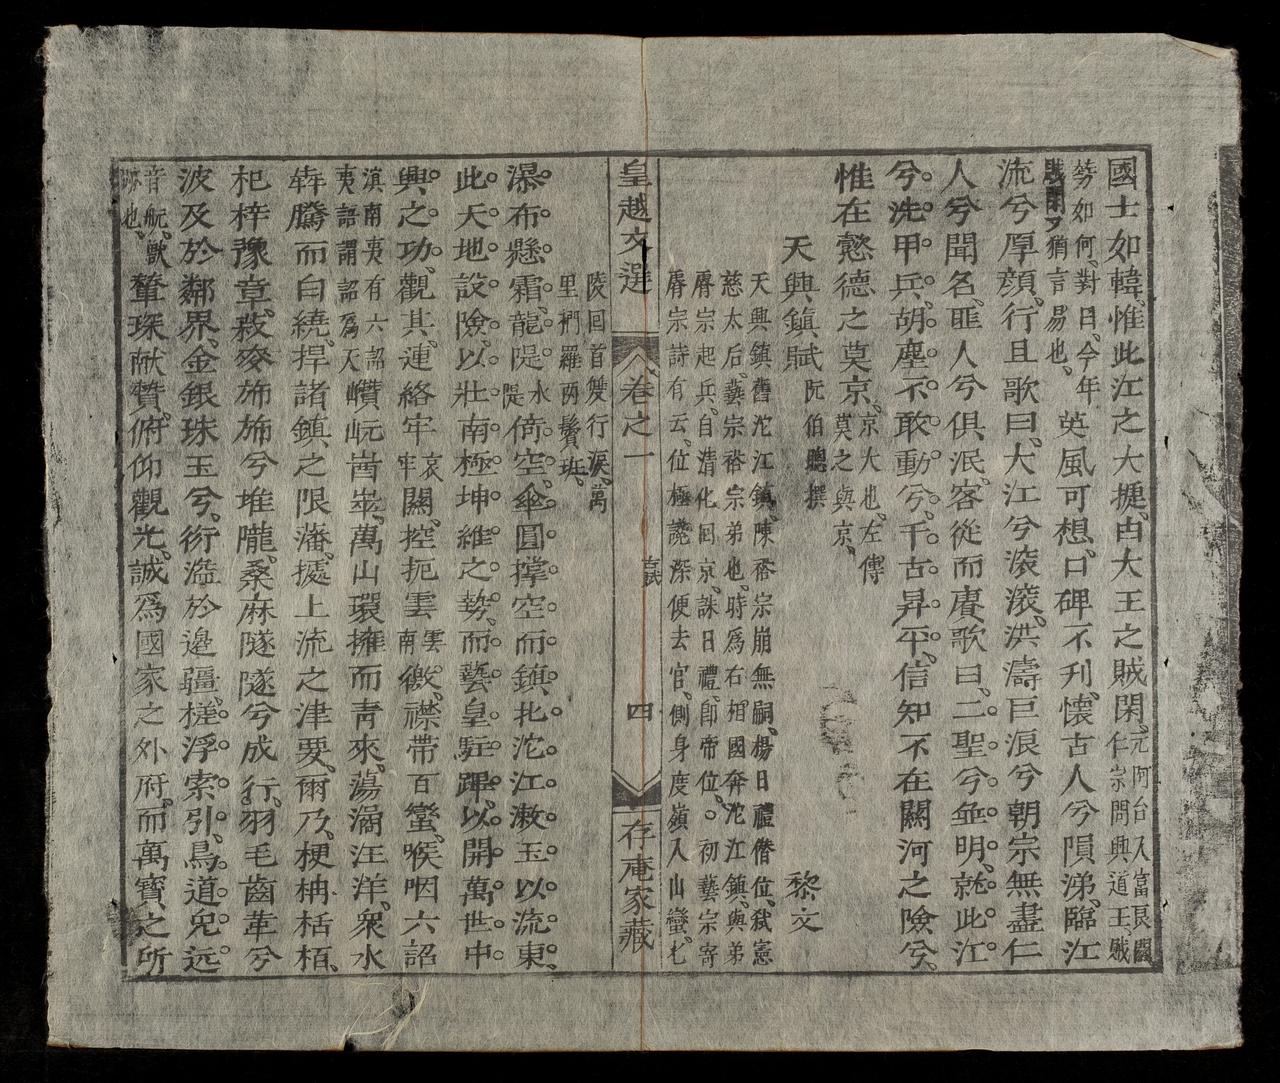 國士如韓。惟此江之大捷。由大王之賊閑。元阿台入富良關仁宗問興道王。賊
勢如何。對曰。今年賊閑又猶言易也。英風可想。口碑不刊。懷古人兮隕涕。臨江
流兮厚顏。行且歌曰。大江兮滚滚。洪濤巨浪兮朝宗無盡仁
人兮聞名。匪人兮俱泯。客從而賡歌曰。二聖兮並明。就此江
兮洗甲兵。胡塵不敢動兮。千古昇平。信知不在關河之險兮。
惟在懿德之莫京。京大也。左傳莫之與京。
天興鎮賦 阮伯聰撰 黎文
天興鎮舊沱江鎮。陳裕宗崩無嗣。楊日禮僭位。弑憲
慈太后。藝宗裕宗弟也。時爲右相國奔沱江鎮。與弟
睿宗起兵。自清化回京。誅日禮。即帝位。初藝宗寄
睿宗詩有云。位極讒深便去官。側身度嶺入山蠻。七
皇越文選 卷之一 四 存庵家藏
陵回首雙行淚。萬
里捫羅两鬢班。
瀑布懸霜。龍隄水隄倚空。傘圓撑空而鎮北。沱江漱玉以流東。
此天地設險。以壯南極坤維之勢。而藝皇駐蹕。以開萬世中
興之功。觀其。連絡牢哀牢關。控扼雲雲南徼。襟帶百蠻。喉咽六詔
滇南夷有六詔夷語謂詔爲天巑岏崷崒。萬山環擁而青來。蕩潏汪洋。衆水
犇騰而白繞。捍諸鎮之限藩。據上流之津要。爾乃梗柟栝栢。
杞梓豫章。菽麥旆旆兮堆隴。桑麻隧隧兮成行。羽毛齒革兮
波及於鄰界。金銀珠玉兮。衍溢於邉疆。槎浮索引。鳥道兒远
音航。獸跡也。輦琛献贊。俯仰觀光。誠爲國家之外府。而萬寳之所